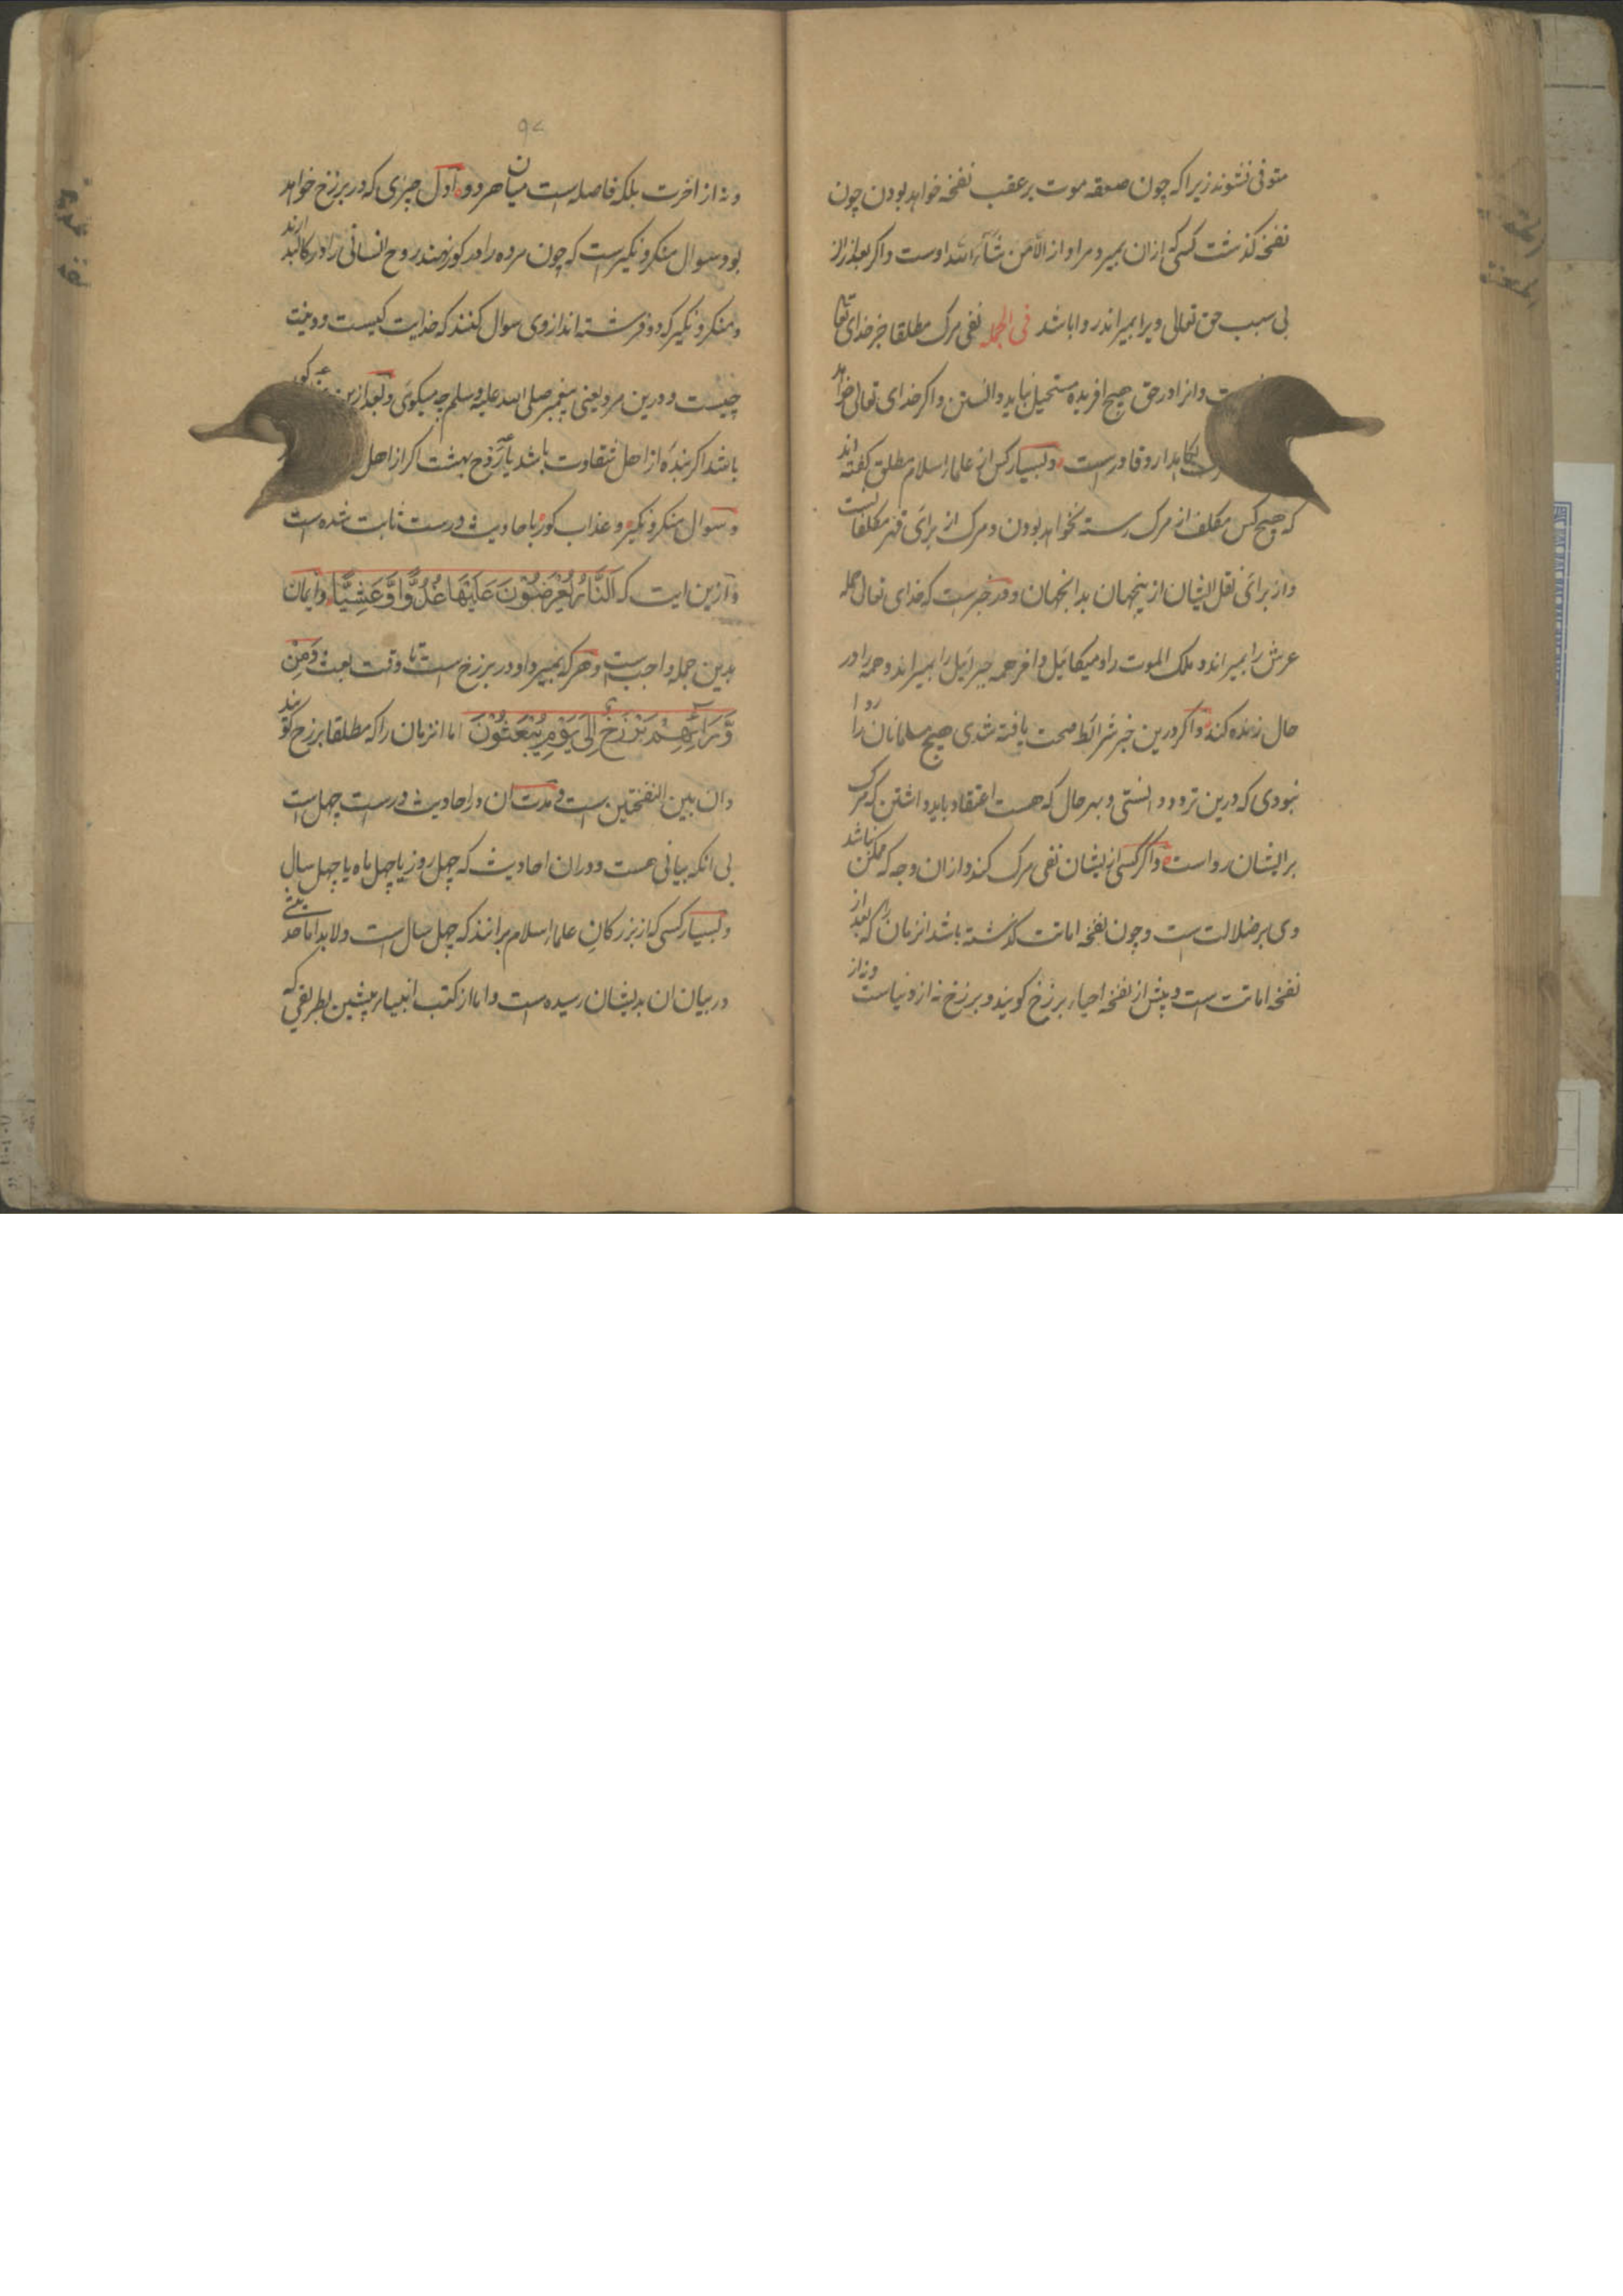 متوفی نشوند زیرا که چون صعقه موت بر عقب نفخه خواهد بودن چون
نفخه کذشت کسی که ازان بمیرد مراو از الّا من شآءالله اوست واکر بعد ازان
بی سبب حق تعالی ویرا بمیراند روا باشد فی الجمله نفی مرک مطلقا جز خدای تعا
وانرا در حق هیچ افریده مستحیل نباید دانستن واکر خدای تعالی خواهد
نکاهدارد قادرست و بسیار کس از علماء اسلام مطلق کفته اند
که هیچ کس مکلف از مرک رسته نخواهد بودن و مرک از برای قهر مکلفانست
واز برای نقل ایشان ازینجهان بدانجهان ودر خبرست که خدای تعالی حمله
عرش را بمیراند و ملک الموت را و میکائیل و اخر همه جبرائیل را بمیراند وهمه را در
حال زنده کند واکر درین خبر شرائط صحت یافته شدی هیچ مسلمانان را روا
نبودی که درین تردد دانستی و بهر حال که هست اعتقاد باید داشتن که مرک
بر ایشان رواست واکر کسی از یشان نفی مرک کند ازان وجه که ممکن نباشد
وی بر ضلالت است وچون نفخه اماتت کذشته باشد انزمان را که بعد از
نفخه اماتت است و پیش از نفخه احیاء برزخ کویند و برزخ نه از دنیاست ونه از
۹۷
ونه از اخرت بلکه فاصله است میان هر دو اول چیزی که در برزخ خواهد
بود سوال منکر و نکیرست که چون مرده را در کور نهند روح انسانی را در کالبد ارند
و منکر و نکیر که دو فرشته اند از وی سوال کنند که خدایت کیست و دینت
چیست و درین مرد یعنی پیغمبر صلی الله علیه وسلم چه میکوئی و بعد ازین
باشد اکر بنده از اهل شقاوت باشد یا روح بهشت اکر از اهل
و سوال منکر و نکیر و عذاب کور باحادیث درست ثابت شده است
و ازین ایت که اَلنَّارُ یُعْرَضُوْنَ عَلَیْهَا غُدُوًّا وَّعَشِیًّا وایمان
بدین جمله واجب است و هر که بمیرد او در برزخ است تا وقت بعث وَمِنْ
وَّرَآئِهِمْ بَرْزَخٌ اِلٰی یَوْمِ یُبْعَثُوْنَ اما انزمان را که مطلقا برزخ کویند
وان بین النفختین است و مدت ان در احادیث درست چهل است
بی انکه بیانی هست دوران احادیث که چهل روز یا چهل ماه یا چهل سال
و بسیار کسی که از بزرکان علماء اسلام برانند که چهل سال است ولابد اما حدیثی
در بیان ان بدیشان رسیده است واما از کتب انبیاء پیشین بطریقی که